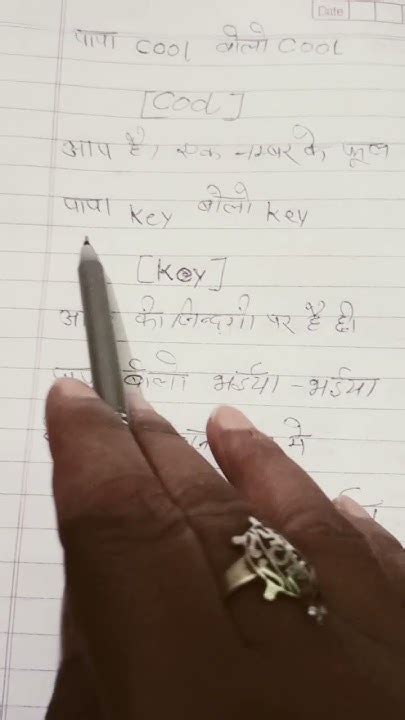 Date
पापा cool बोलो cool
[Cool]
आप है। एक नम्बर के फूल
पापा key बोलो key
[Key]
की जिन्दगी पर है ही
बोलो भईया - भईया
में